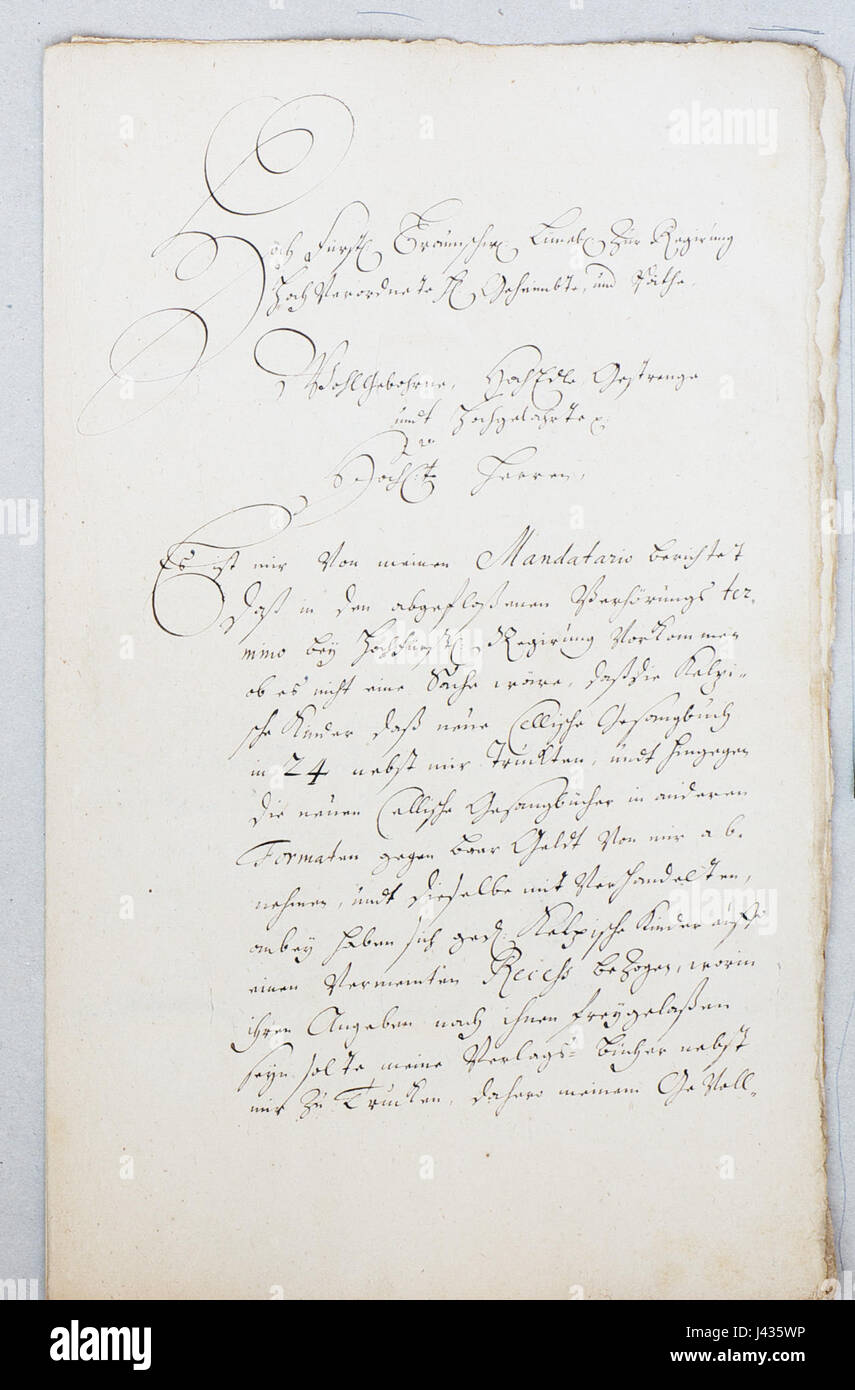 Hoch Fürstl. Braunschw. Lüneb. Zur Regirung
Hoch Verordnete H. Geheimbte, und Räthe,
WohlGebohrne, HochEdle Gestrenge
undt Hochgelahrte
Herren,
Es ist mir Von meinen Mandatario berichtet
Daß in den abgefloßenen Verhörungs ter-
mino bey Hochfürstl. Regirung Vorkommen
ob es nicht eine Sache wäre, daß die Kelpi-
sche Kinder daß neüe Cellische Gesangbuch
in 24 nebst mir Truckten, undt hingegen
die neüen Cellische Gesangbücher in anderen
Formaten gegen baar Geldt Von mir ab-
nehmen, undt dieselbe mit Verhandelten,
anbey haben sich ged. Kelpische Kinder auff
einen Vermeinten Recess bezogen, worin
ihren Angeben nach ihnen freygelaßen
seyn solte meine Verlags- bücher nebst
mir zu Trucken, dahero meinem GeVoll-
alamy
alamy
alamy
alamy
alamy
J435WP
www.alamy.com